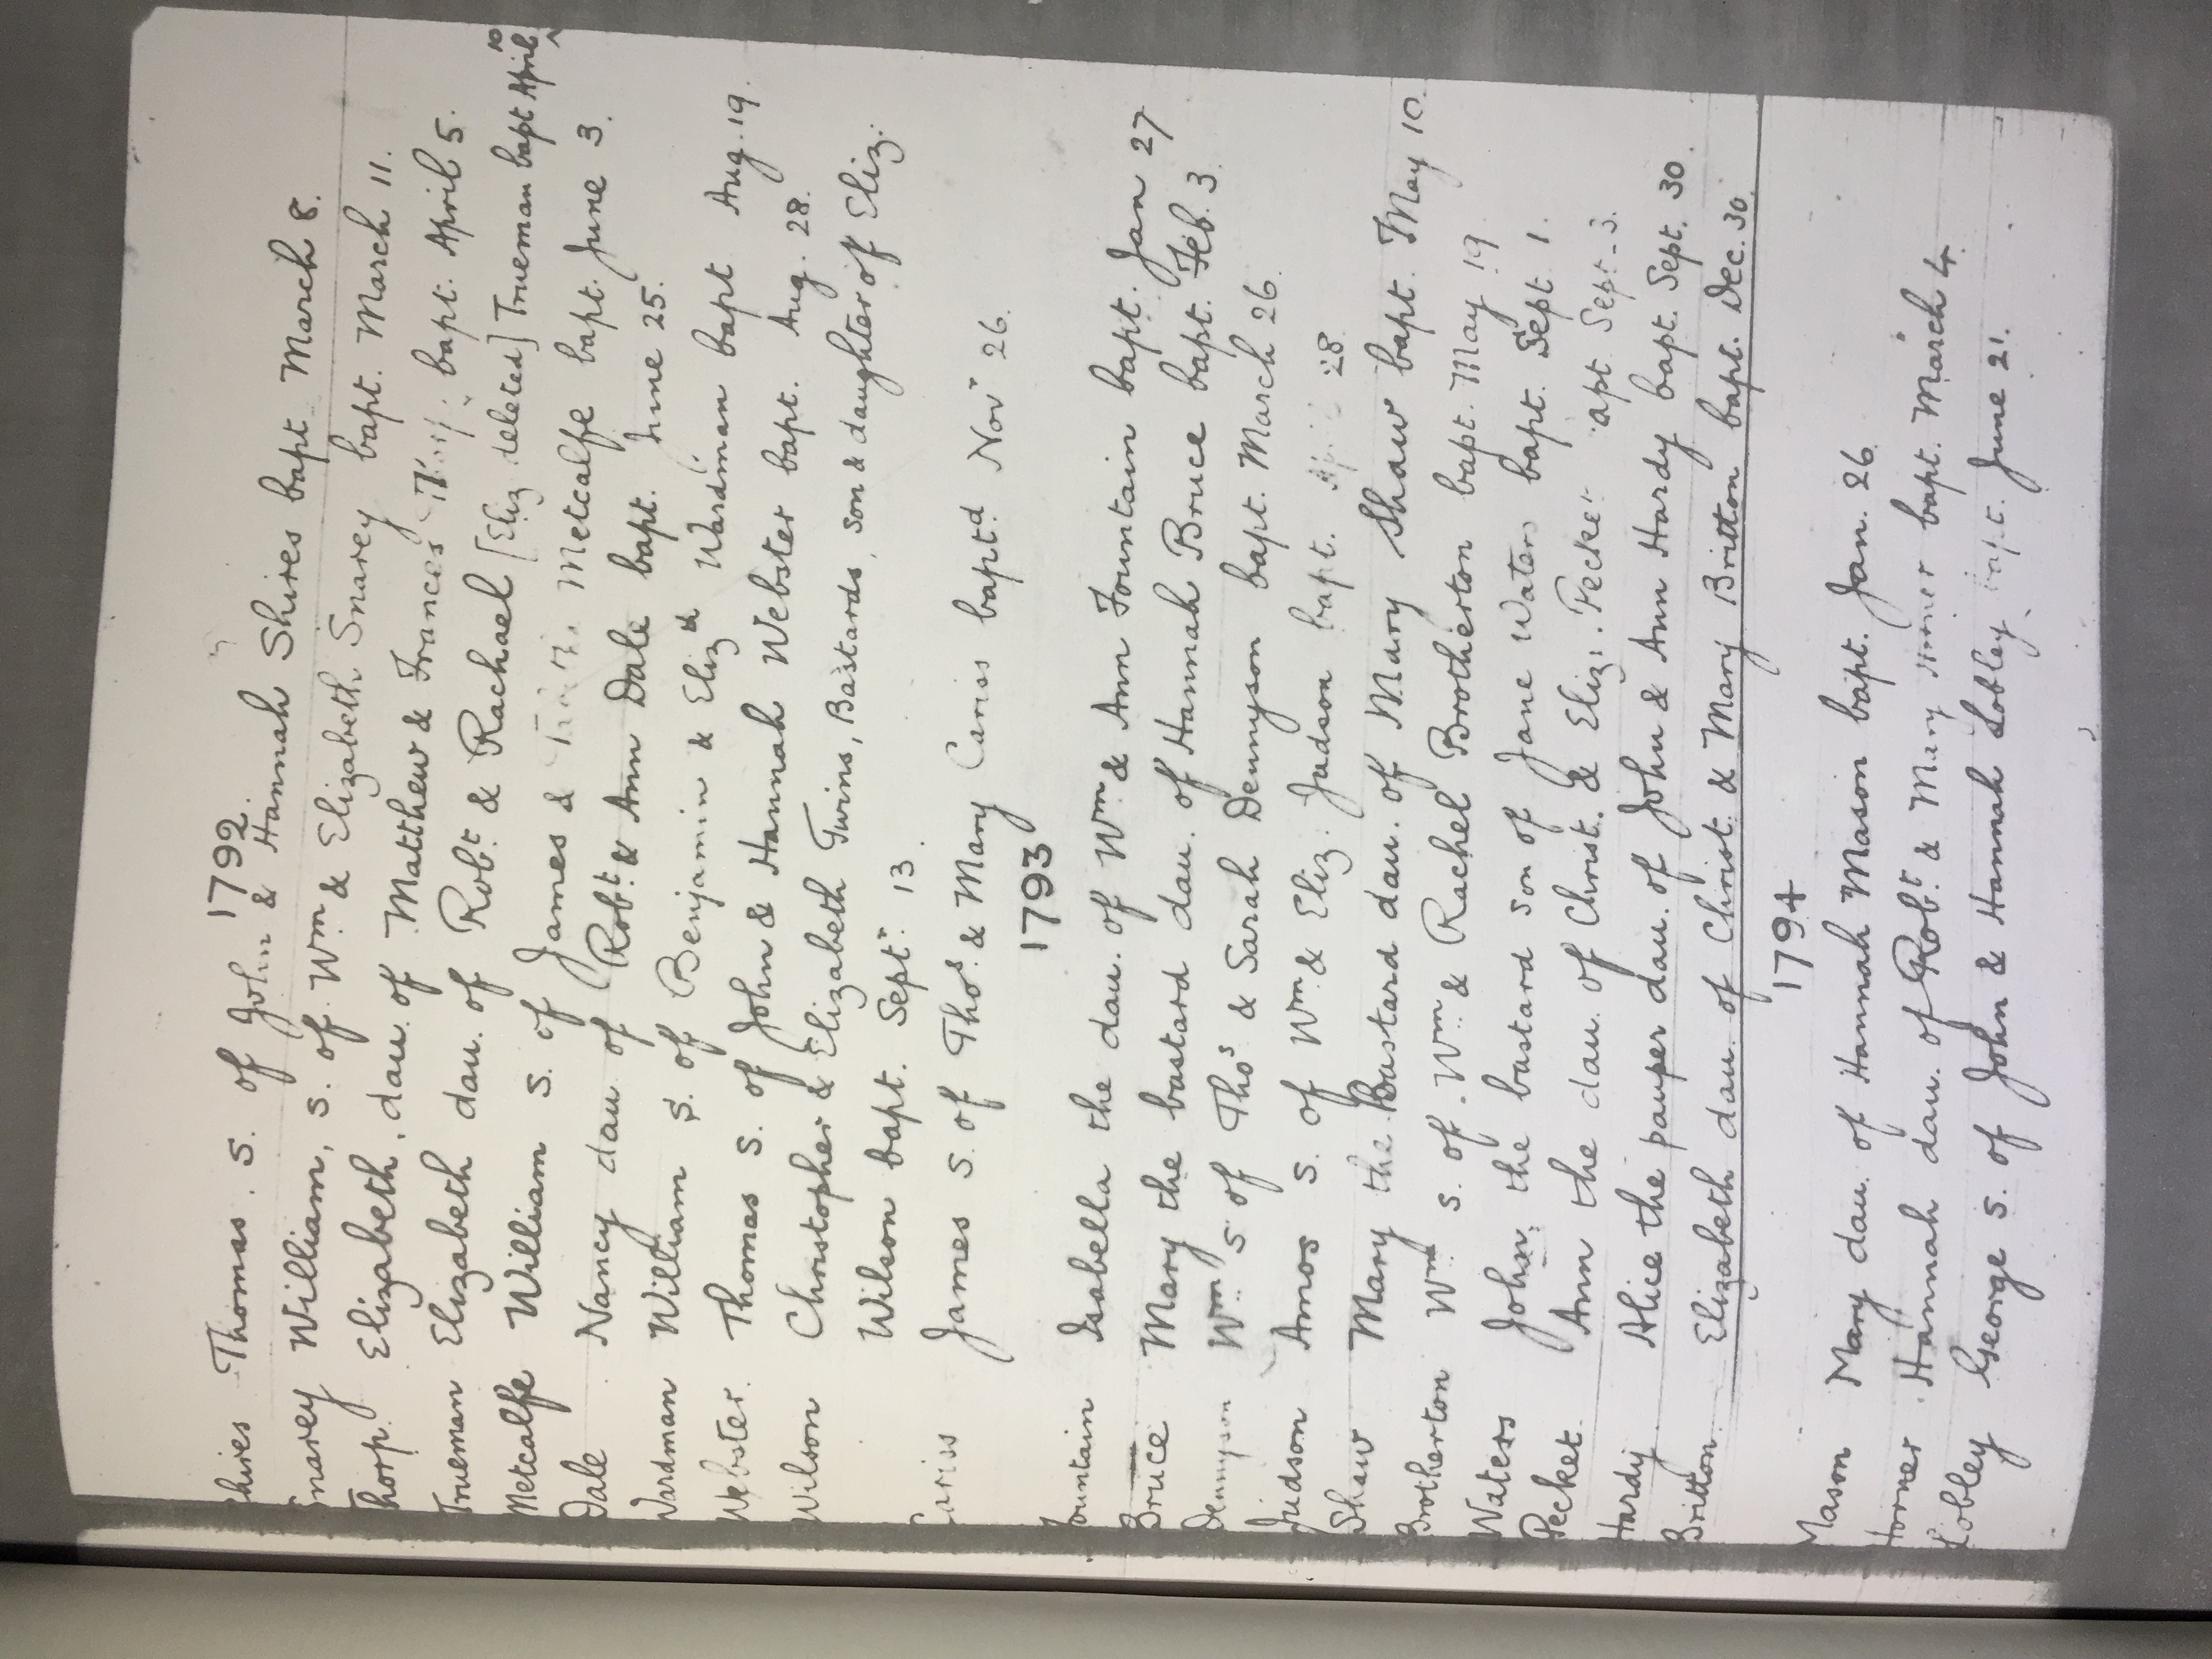 1792.
Shires Thomas. s. of John & Hannah Shires bapt March 8.
Snarey William, s. of Wm. & Elizabeth Snarey bapt. March 11.
Thorp. Elizabeth, dau. of Matthew & Frances bapt. April 5.
Trueman Elizabeth dau. of Robt. & Rachael [Eliz deleted] Trueman bapt April 10
Metcalfe William s. of James & Metcalfe bapt. June 3.
Dale Nancy dau. of Robt. & Ann Dale bapt. June 25.
Wardman William s. of Benjamin & Elizth Wardman bapt Aug. 19.
Webster. Thomas s. of John & Hannah Webster bapt. Aug. 28.
Wilson Christopher & Elizabeth Twins, Bastards, son & daughter of Eliz.
Wilson bapt. Septr. 13.
Cariss James s. of Thos. & Mary Cariss baptd. Novr 26.
1793
Fountain Isabella the dau. of Wm. & Ann Fountain bapt. Jan 27
Bruce Mary the bastard dau. of Hannah Bruce bapt. Feb. 3.
Dennyson Wm. s of Thos & Sarah Dennyson bapt. March 26.
Judson Amos s. of Wm. & Eliz. Judson bapt. April 28.
Shaw Mary the Bastard dau. of Mary Shaw bapt. May 10.
Brotherton Wm. s. of. Wm. & Rachel Brotherton bapt. May 19
Waters John, the bastard son of Jane Waters bapt. Sept 1.
Pecket. Ann the dau. of Christ. & Eliz. Pecket bapt. Sept. 3.
Hardy Alice the pauper dau. of John & Ann Hardy bapt. Sept. 30.
Britton Elizabeth dau. of Christ. & Mary Britton bapt. Dec. 30.
1794
Mason Mary dau. of Hannah Mason bapt. Jan. 26.
Horner Hannah dau. of Robt. & Mary Horner bapt. March 4.
Lobley George s. of John & Hannah Lobley bapt. June 21.